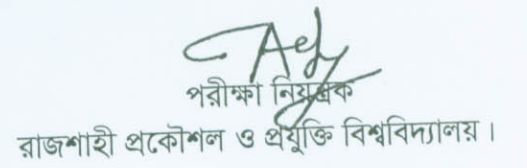 পরীক্ষা নিয়ন্ত্রক
রাজশাহী প্রকৌশল ও প্রযুক্তি বিশ্ববিদ্যালয়।